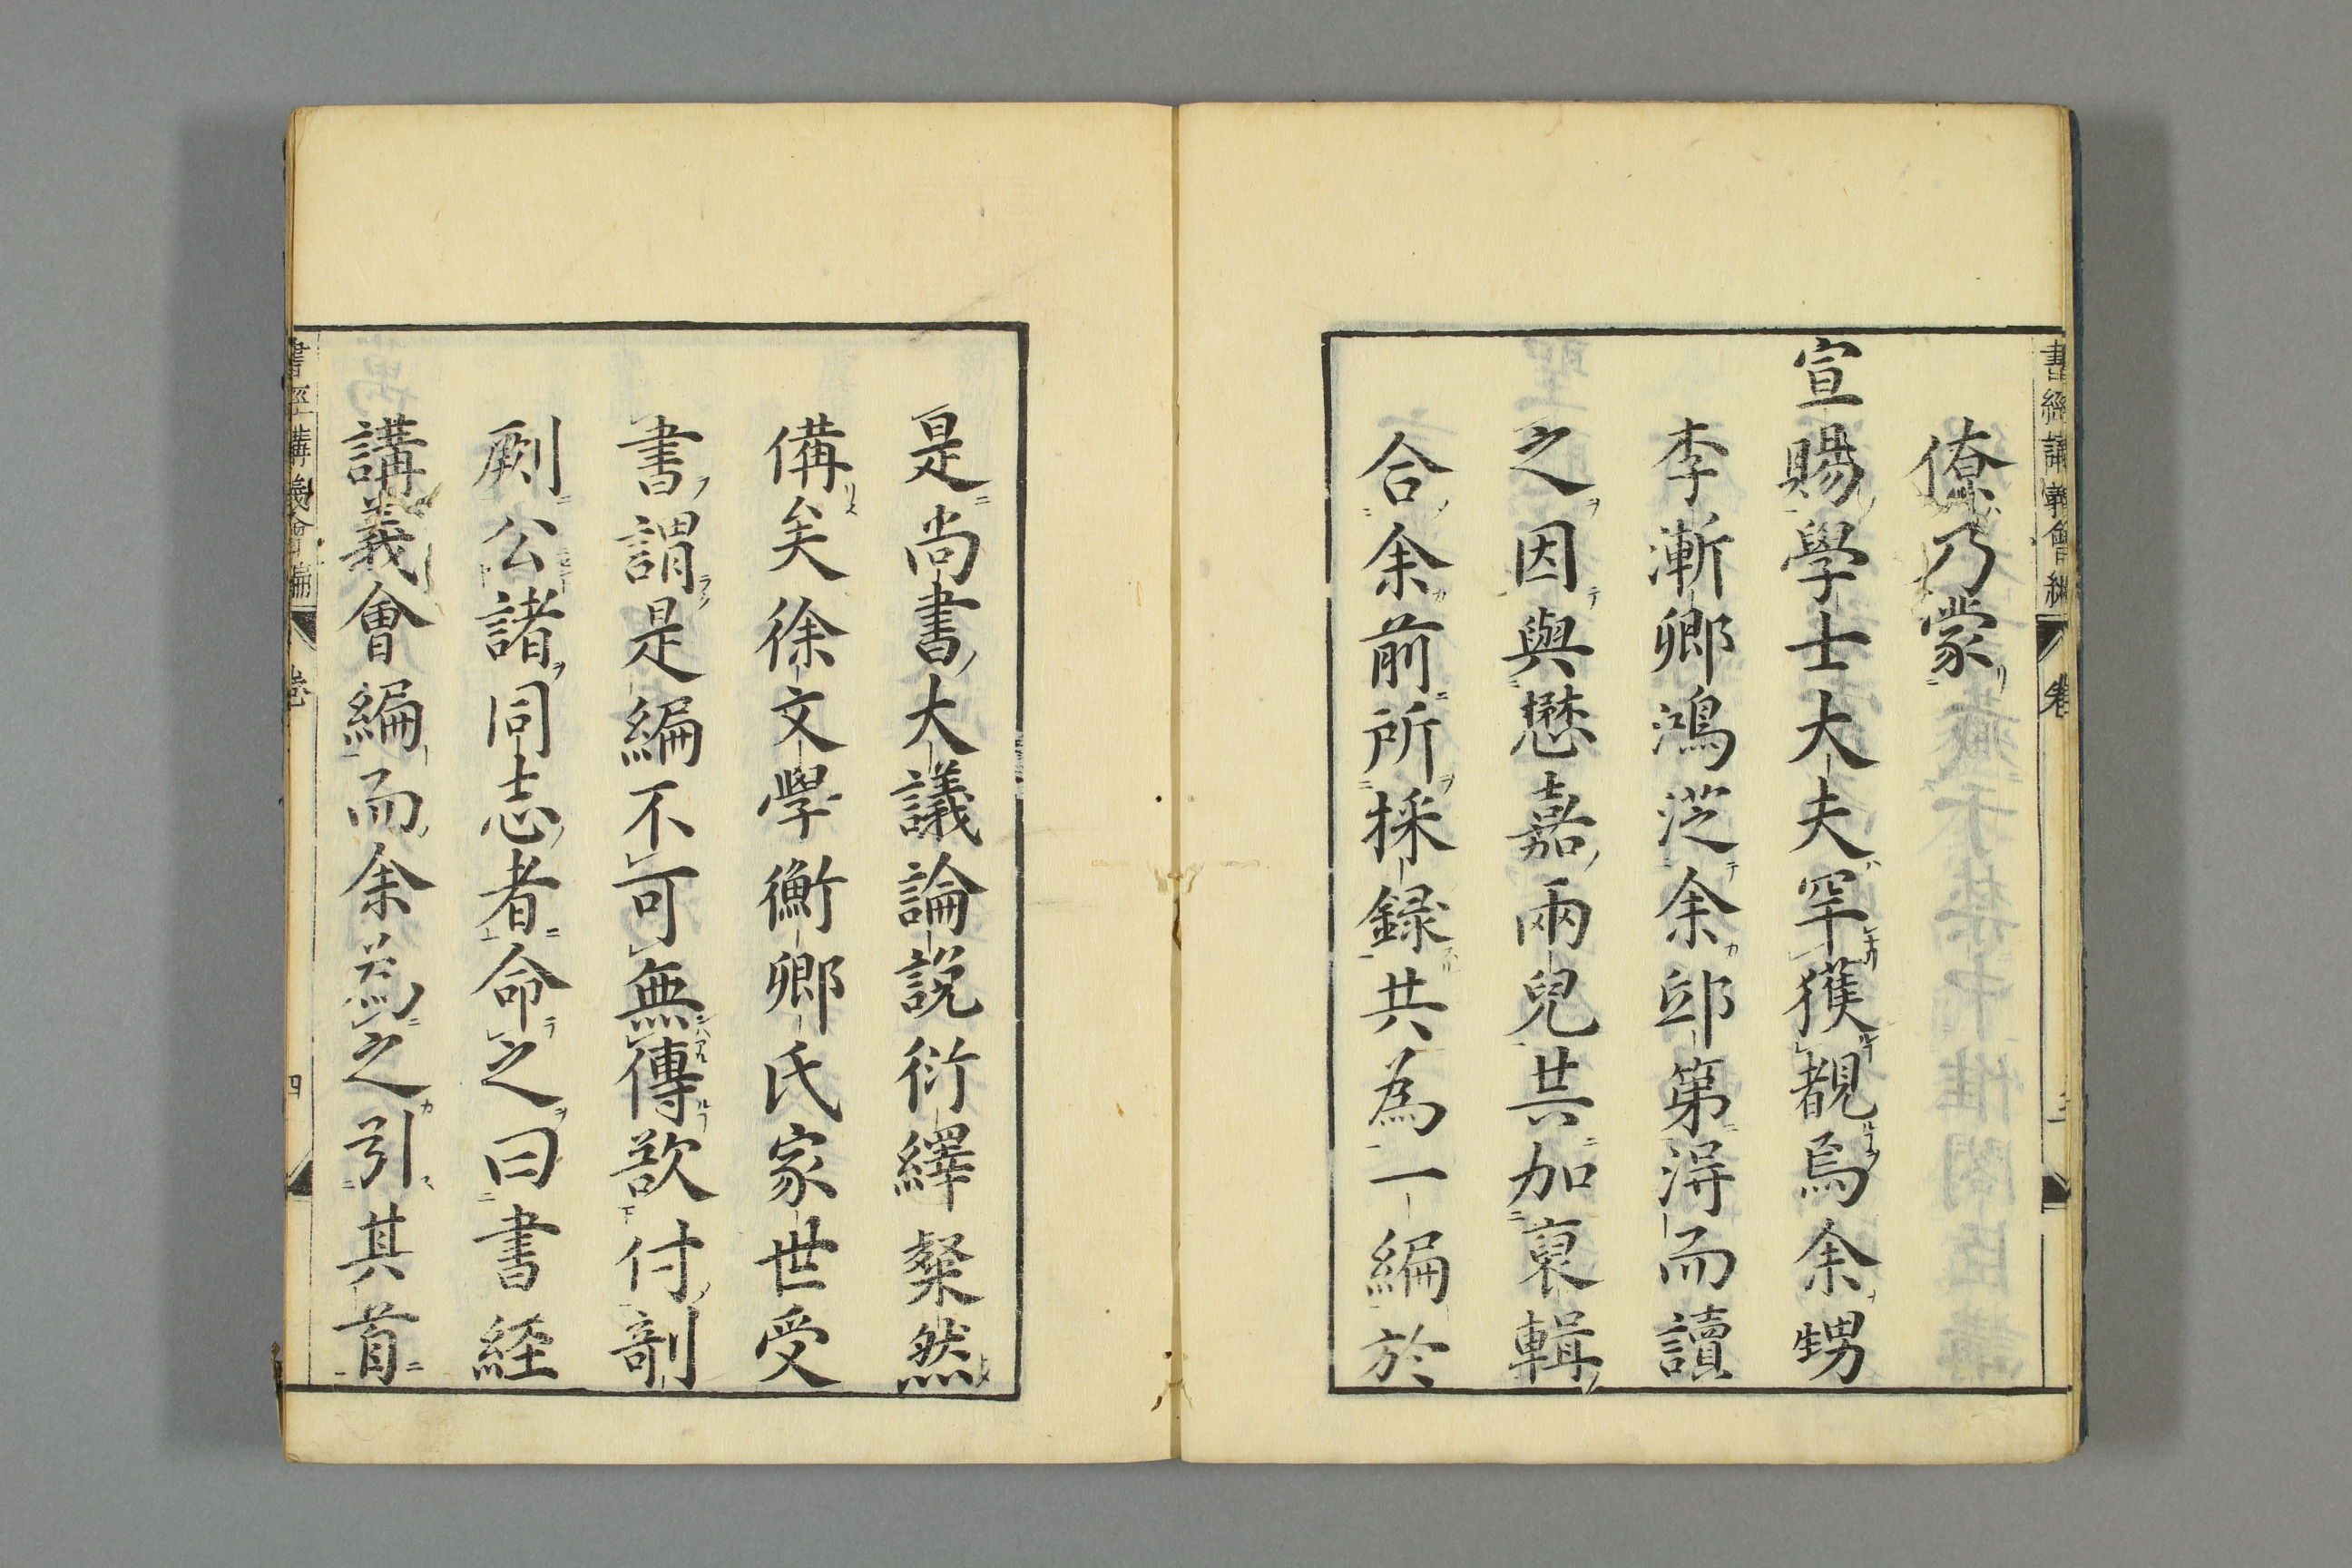 書經講義會編 卷
僚乃蒙
宣賜學士大夫罕獲覩焉余甥
李漸卿鴻從余邸第得而讀
之因與懋嘉兩兒共加裒輯
合余前所採録共為一編於
是尚書大議論説衍繹粲然
備矣徐文學衡卿氏家世受
書謂是編不可無傳欲付剞
劂公諸同志者命之曰書経
講義會編而余為之引其首
書經講義會編 卷 四